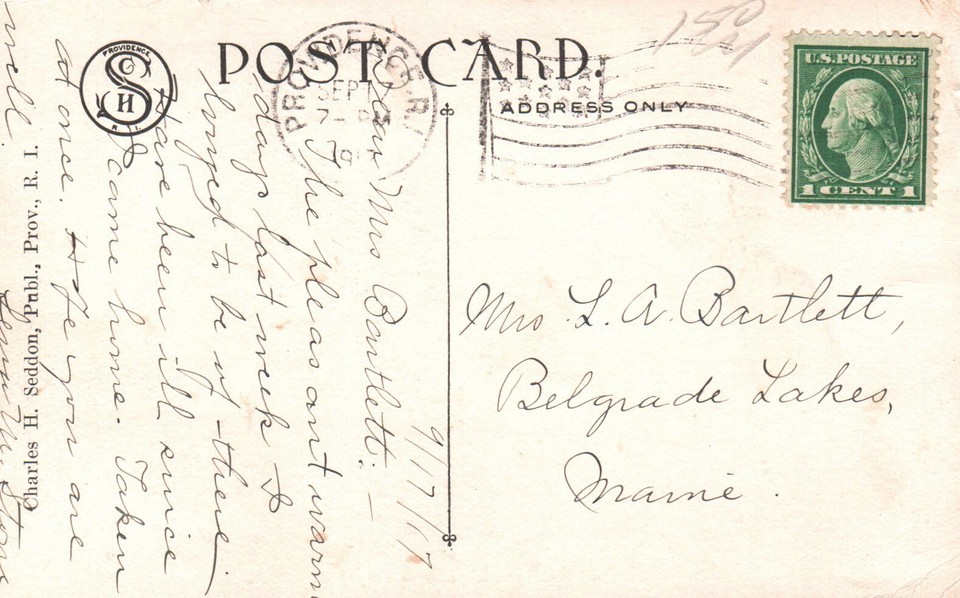 POST CARD.
ADDRESS ONLY
PROVIDENCE
S
H
R I
PROVIDENCE R.I.
SEPT
7 - PM
191
U.S. POSTAGE
1 CENT 1
150
Charles H. Seddon, Publ., Prov., R. I.
9/17/17
Dear Mrs Bartlett: —
The pleasant warm
days last week I
longed to be up there,
Have been ill since
I came home. Taken
at once. Hope you are
well.
Mrs. L. A. Bartlett,
Belgrade Lakes,
Maine.